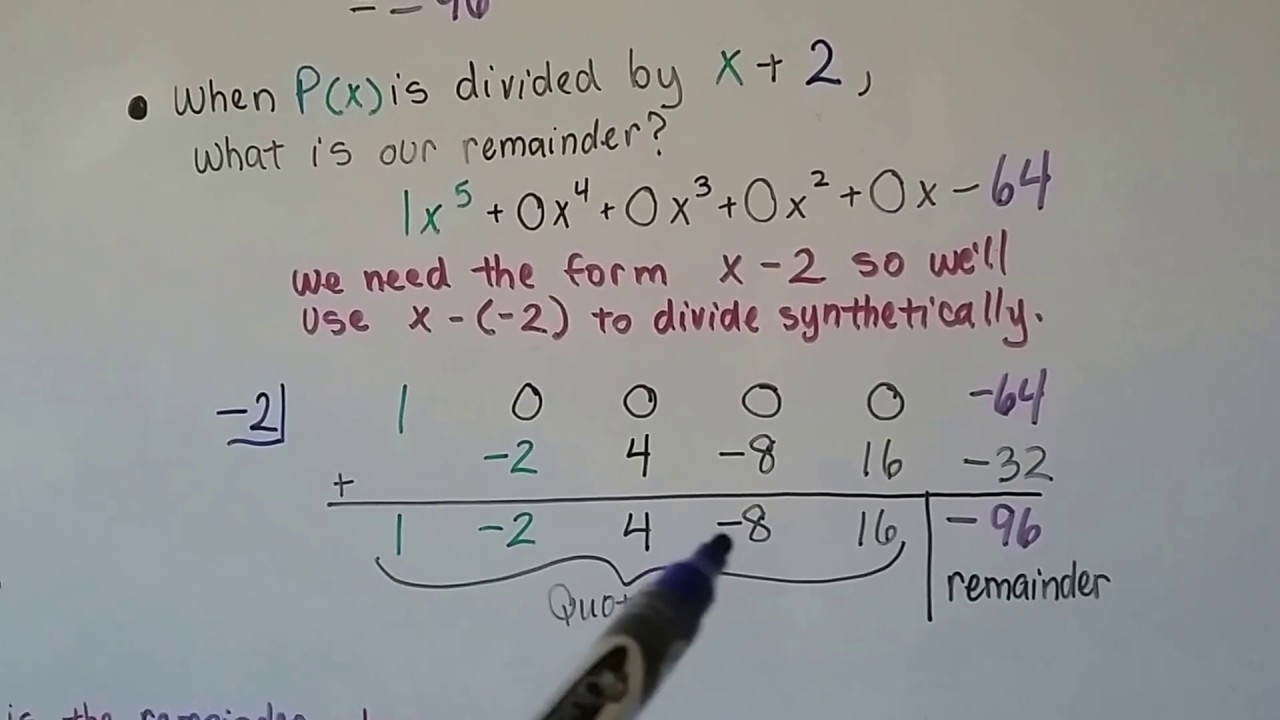 - - 96
• When P(x) is divided by x + 2,
What is our remainder?
1x⁵ + 0x⁴ + 0x³ + 0x² + 0x - 64
we need the form x - 2 so we'll
use x - (-2) to divide synthetically.
-2| 1 0 0 0 0 -64
+ -2 4 -8 16 -32
1 -2 4 -8 16 | -96
Quo
remainder
is the remainder